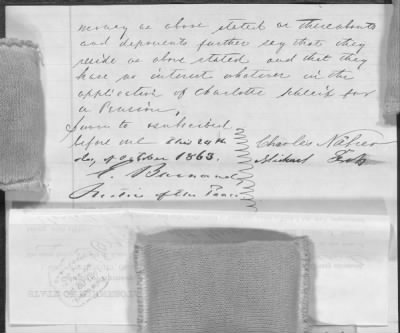 money as above stated or thereabouts
and deponents further say that they
reside as above stated and that they
have no interest whatever in the
application of Charlotte for
a Pension,
Sworn to & subscribed
before me this 24th
day of October 1863.
Charles
Michael
Justice of the Peace